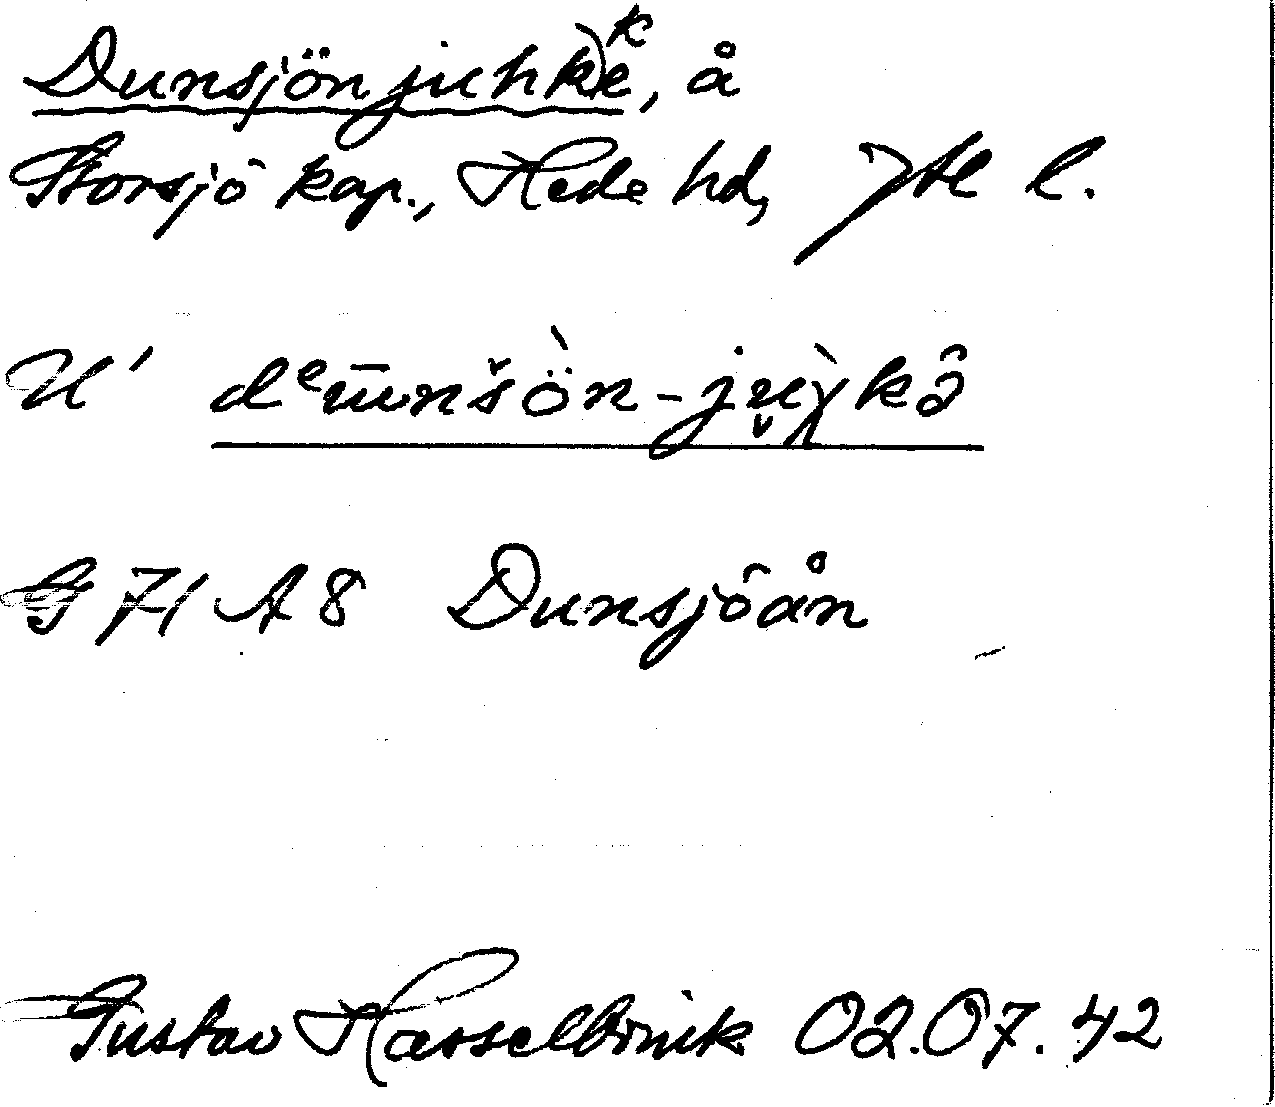 Dunsjönjuhkke, å
Storsjö kap., Hede hd, Jtl l.
U' dᵉūnšö̀n-ju̬χ̀kâ
G 71 A 8 Dunsjöån
Gustav Hasselbrink 02.07.42